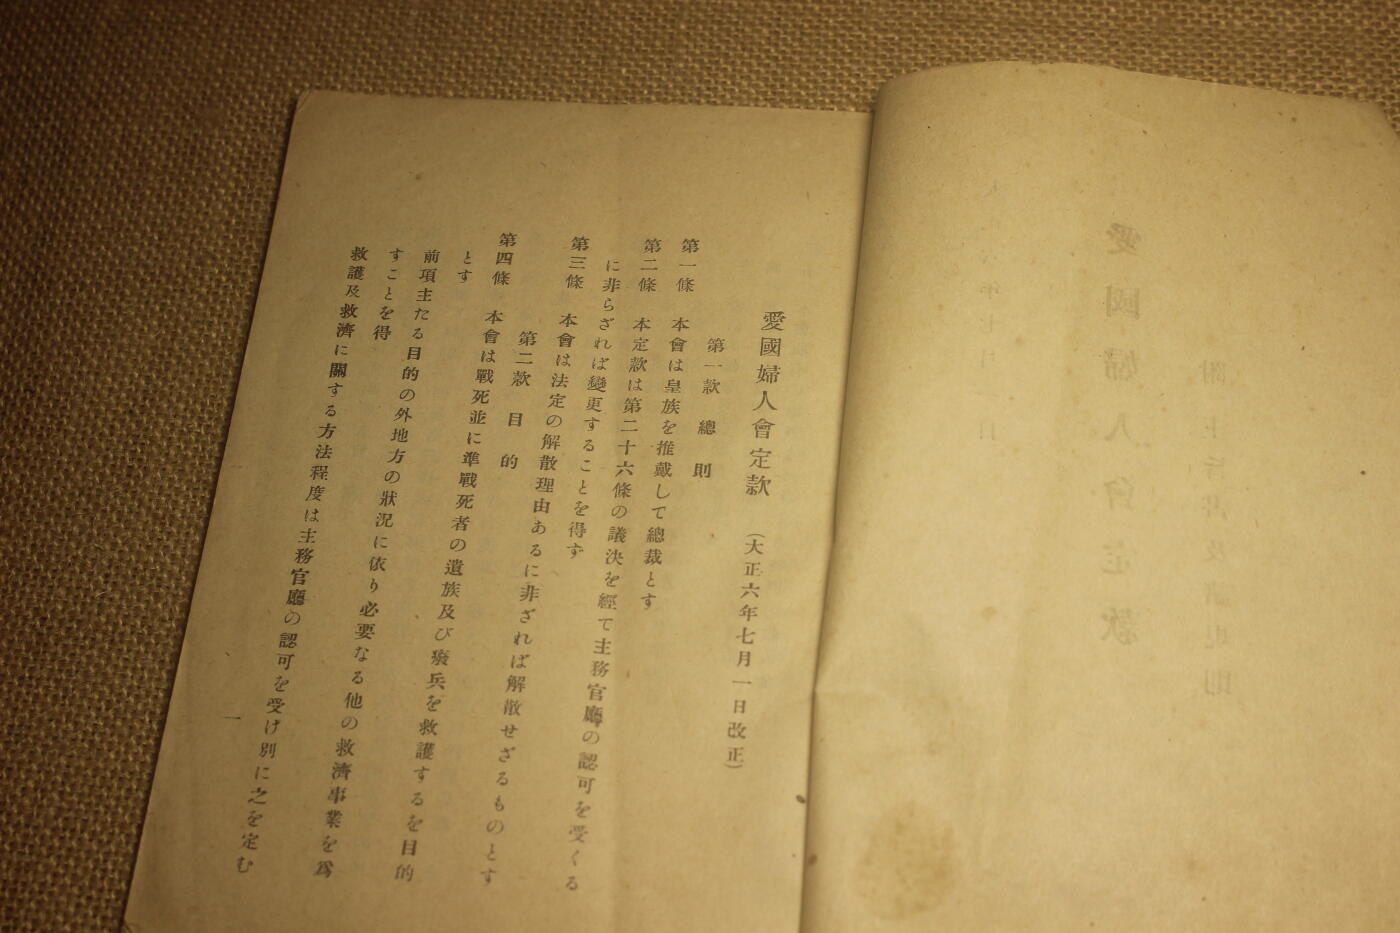 愛國婦人會定款 (大正六年七月一日改正)
第一款 總則
第一條 本會は皇族を推戴して總裁とす
第二條 本定款は第二十六條の議決を經て主務官廳の認可を受くる
に非らざれば變更することを得ず
第三條 本會は法定の解散理由あるに非ざれば解散せざるものとす
第二款 目的
第四條 本會は戰死並に準戰死者の遺族及び癈兵を救護するを目的
とす
前項主たる目的の外地方の狀況に依り必要なる他の救濟事業を爲
すことを得
救護及救濟に關する方法程度は主務官廳の認可を受け別に之を定む
一
愛國婦人會定款